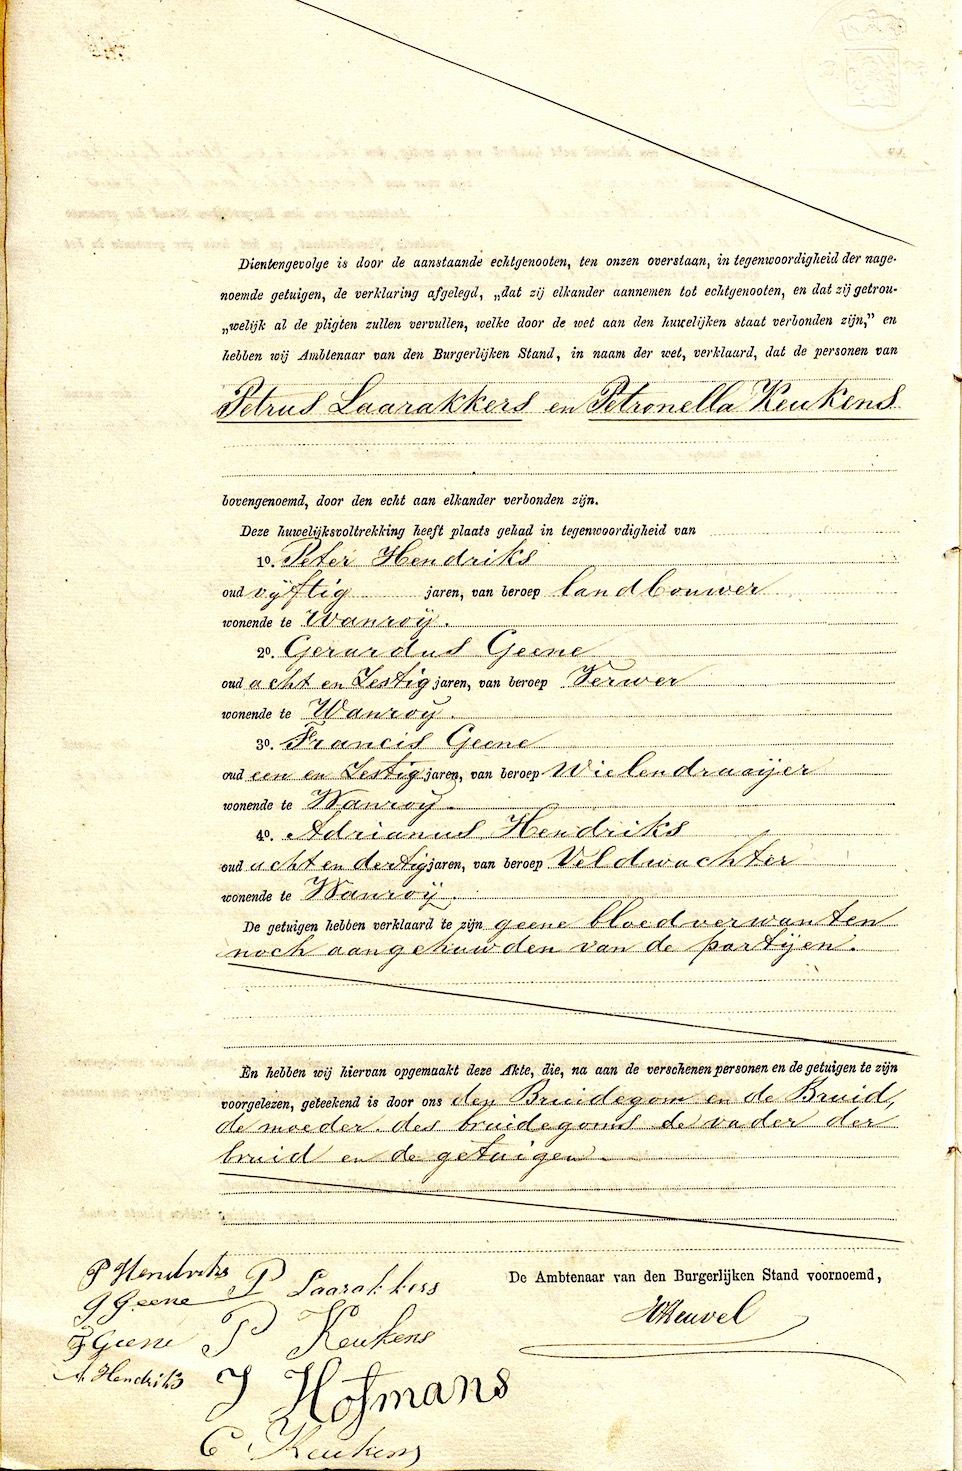 Dientengevolge is door de aanstaande echtgenooten, ten onzen overstaan, in tegenwoordigheid der nage-
noemde getuigen, de verklaring afgelegd, „dat zij elkander aannemen tot echtgenooten, en dat zij getrou-
„welijk al de pligten zullen vervullen, welke door de wet aan den huwelijken staat verbonden zijn," en
hebben wij Ambtenaar van den Burgerlijken Stand, in naam der wet, verklaard, dat de personen van
Petrus Laarakkers en Petronella Keukens
bovengenoemd, door den echt aan elkander verbonden zijn.
Deze huwelijksvoltrekking heeft plaats gehad in tegenwoordigheid van
1o. Peter Hendriks
oud vÿftig jaren, van beroep landbouwer
wonende te Wanroÿ.
2o. Gerardus Geene
oud acht en Zestig jaren, van beroep Verwer
wonende te Wanroÿ.
3o. Francis Geene
oud een en Zestig jaren, van beroep Wielendraaijer
wonende te Wanroÿ.
4o. Adrianus Hendriks
oud acht en dertig jaren, van beroep Veldwachter
wonende te Wanroÿ.
De getuigen hebben verklaard te zijn geene bloedverwanten
noch aangehuwden van de partijen.
En hebben wij hiervan opgemaakt deze Akte, die, na aan de verschenen personen en de getuigen te zijn
voorgelezen, geteekend is door ons den Bruidegom en de Bruid,
de moeder des bruidegoms de vader der
bruid en de getuigen.
De Ambtenaar van den Burgerlijken Stand voornoemd,
P Hendriks P Laarakkers
G Geene
F Geene P Keukens
A Hendriks J Hofmans
C Keukens